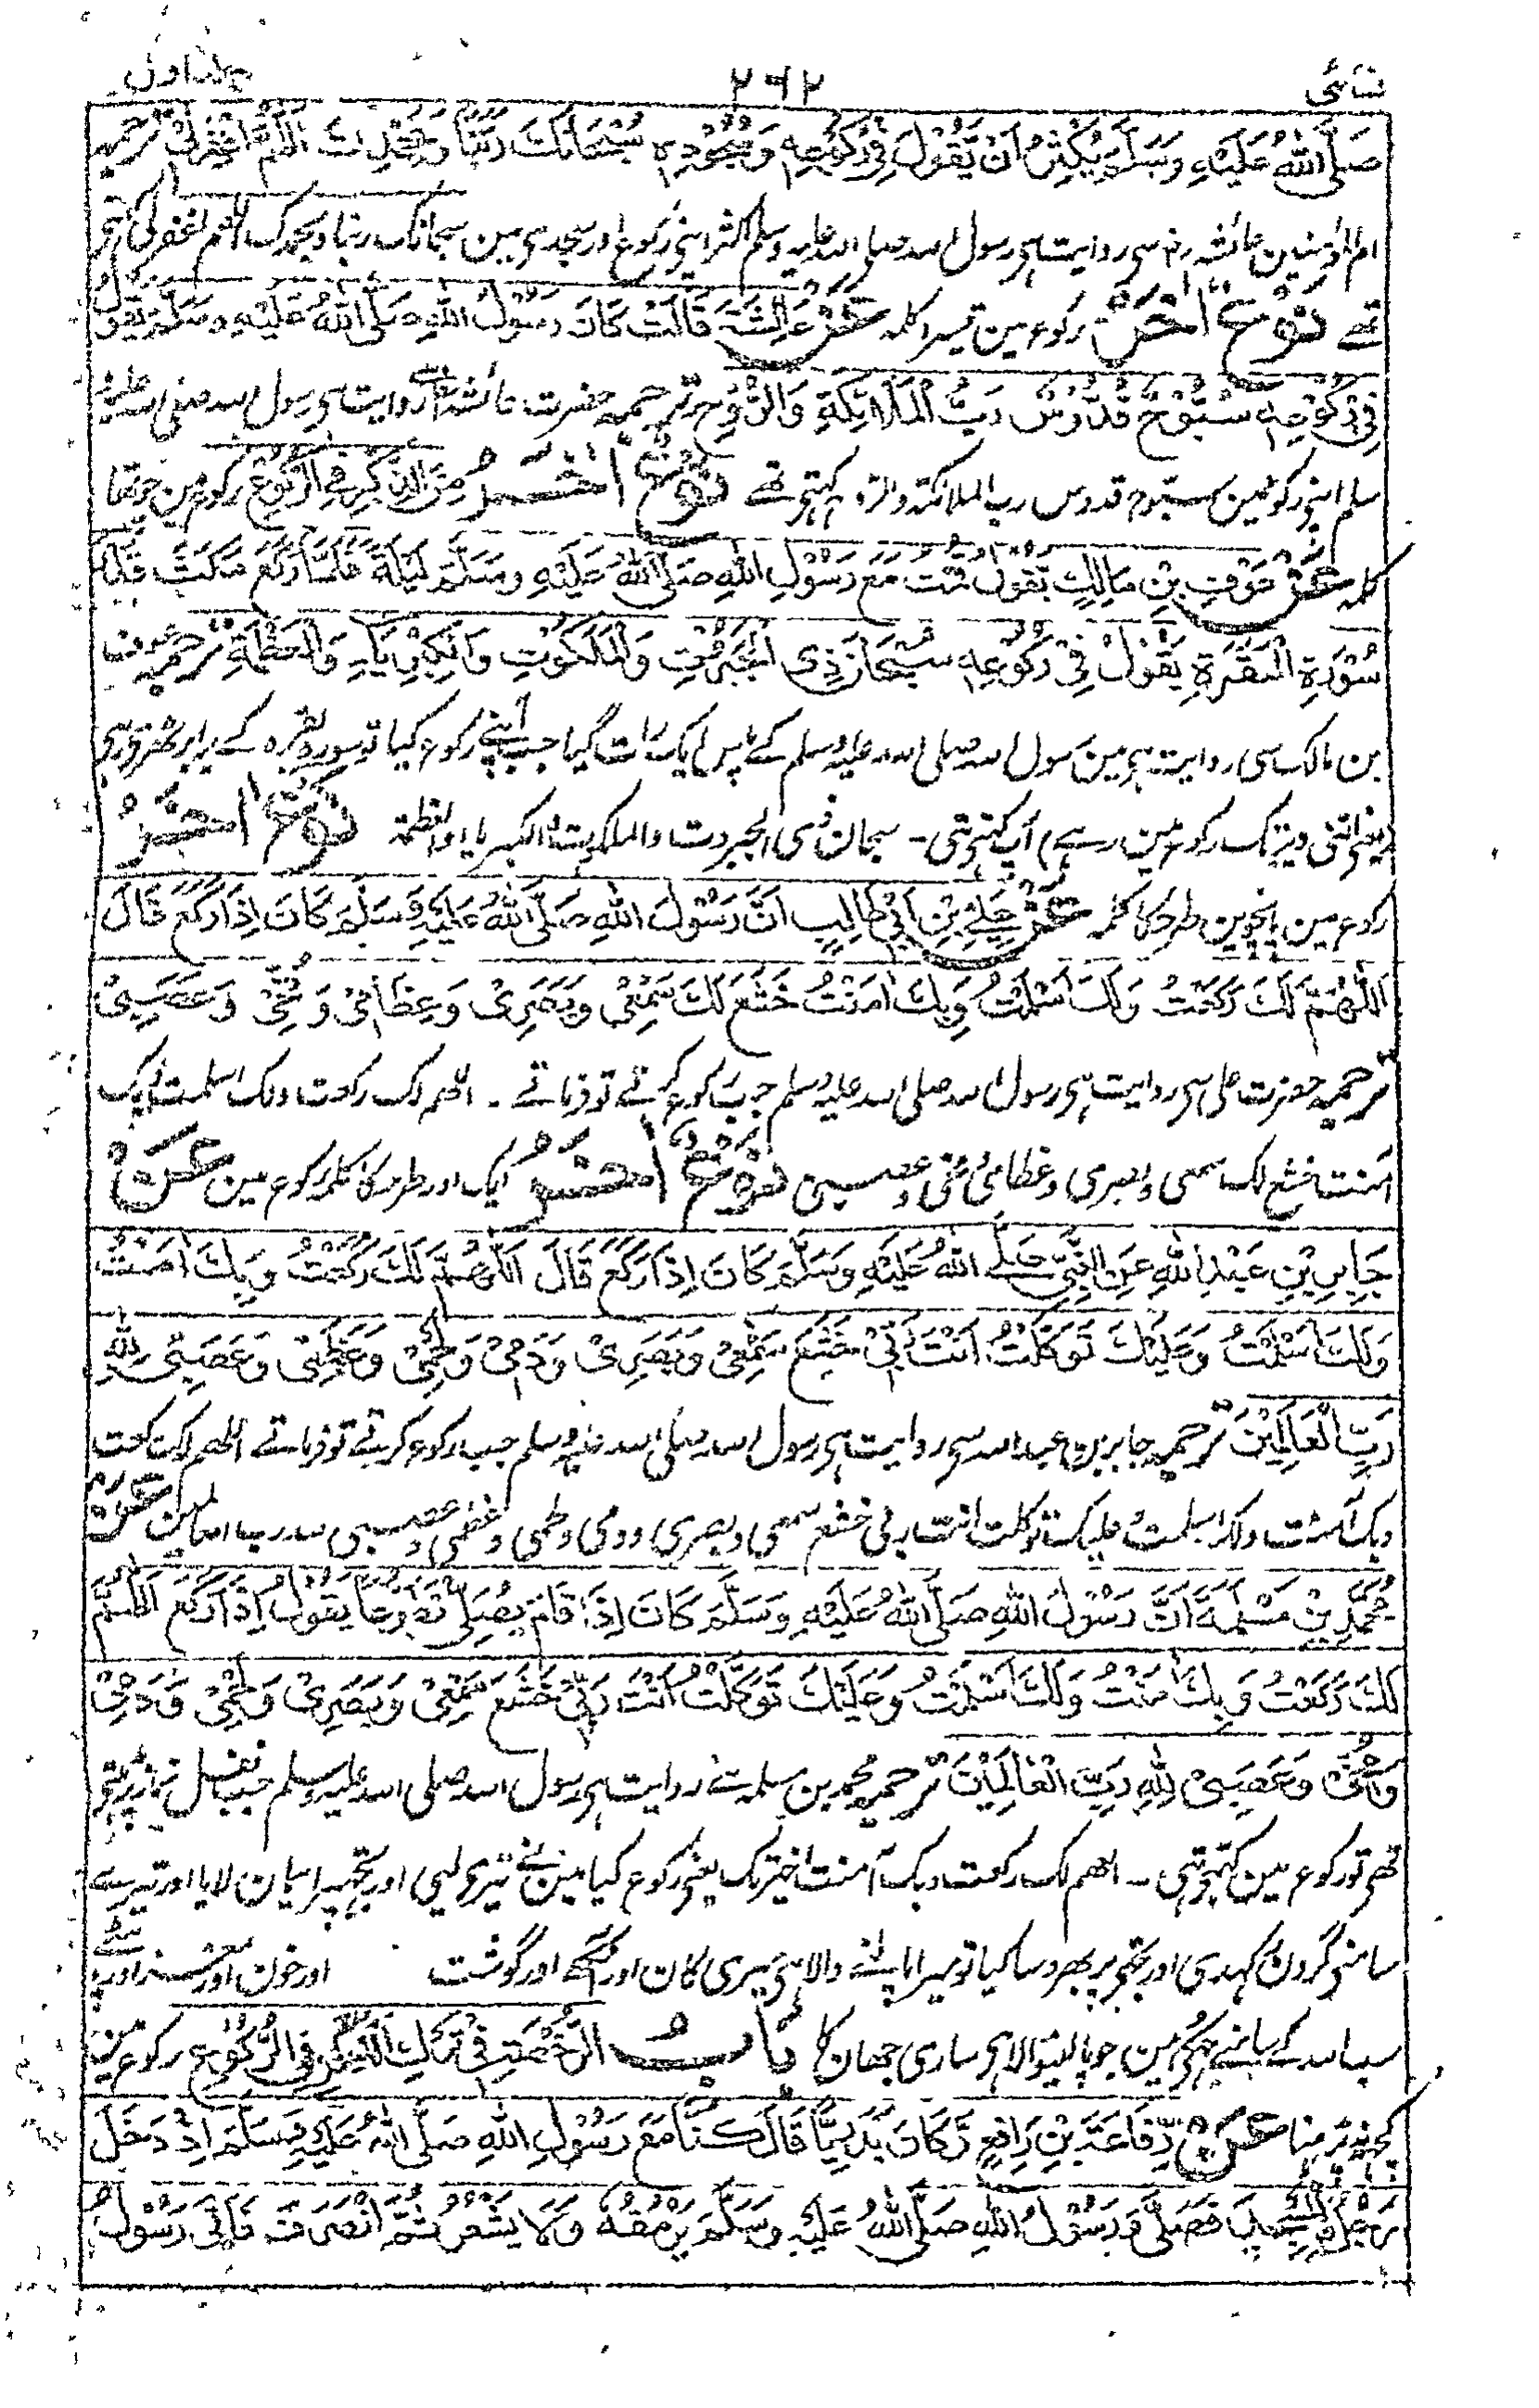 نسائی ۲۶۲ جلد اول
صَلَّى اللهُ عَلَيْهِ وَسَلَّمَ يُكْثِرُ اَنْ يَّقُوْلَ فِیْ رُكُوْعِهٖ وَسُجُوْدِهٖ سُبْحَانَكَ رَبَّنَا وَبِحَمْدِكَ اَللّٰهُمَّ اغْفِرْلِیْ ترجمہ
ام المومنین عائشہ رض سی روایت ہی رسول اسد صلی اسد علیہ وسلم اکثر اپنی رکوع اور سجدی مین سبحانک ربنا وبحمدک اللهم اغفرلی کہتی
تھے نَوْعٌ اٰخَرُ رکوع مین تیسرا کلمہ عَنْ عَائِشَةَ قَالَتْ كَانَ رَسُوْلُ اللهِ صَلَّى اللهُ عَلَيْهِ وَسَلَّمَ يَقُوْلُ
فِیْ رُكُوْعِهٖ سُبُّوْحٌ قُدُّوْسٌ رَبُّ الْمَلَائِكَةِ وَالرُّوْحِ ترجمہ حضرت عائشہ سے روایت ہی رسول اسد صلی اسد علیہ
سلم اپنی رکوع مین سبوح قدوس رب الملائکۃ والروح کہتی تھے نَوْعٌ اٰخَرُ مِنَ الذِّكْرِ فِی الرُّكُوْعِ رکوع مین چوتھا
کلمہ عَنْ عَوْفِ بْنِ مَالِكٍ يَقُوْلُ قُمْتُ مَعَ رَسُوْلِ اللهِ صَلَّى اللهُ عَلَيْهِ وَسَلَّمَ لَيْلَةً فَلَمَّا رَكَعَ مَكَثَ قَدْرَ
سُوْرَةِ الْبَقَرَةِ يَقُوْلُ فِیْ رُكُوْعِهٖ سُبْحَانَ ذِی الْجَبَرُوْتِ وَالْمَلَكُوْتِ وَالْكِبْرِيَاءِ وَالْعَظَمَةِ ترجمہ عوف
بن مالک سی روایت ہی مین رسول اسد صلی اسد علیہ وسلم کے پاس ایک رات گیا جب آپنے رکوع کیا تو سورہ بقرہ کے برابر ٹھری رہی
(یعنی اتنی دیر تک رکوع مین رہے) آپ کہتی تھی ۔ سبحان ذی الجبروت والملکوت والکبریاء والعظمۃ نَوْعٌ اٰخَرُ
رکوع مین پانچوین طرحکا کلمہ عَنْ عَلِیِّ بْنِ اَبِیْ طَالِبٍ اَنَّ رَسُوْلَ اللهِ صَلَّى اللهُ عَلَيْهِ وَسَلَّمَ كَانَ اِذَا رَكَعَ قَالَ
اَللّٰهُمَّ لَكَ رَكَعْتُ وَلَكَ اَسْلَمْتُ وَبِكَ اٰمَنْتُ خَشَعَ لَكَ سَمْعِیْ وَبَصَرِیْ وَعِظَامِیْ وَمُخِّیْ وَعَصَبِیْ
ترجمہ حضرت علی سی روایت ہی رسول اسد صلی اسد علیہ وسلم جب رکوع کرتے تو فرماتے ۔ اللهم لک رکعت ولک اسلمت وبک
امنت خشع لک سمعی وبصری وعظامی ومخی وعصبی نَوْعٌ اٰخَرُ ایک اور طرحکا کلمہ رکوع مین عَنْ
جَابِرِ بْنِ عَبْدِ اللهِ عَنِ النَّبِیِّ صَلَّى اللهُ عَلَيْهِ وَسَلَّمَ كَانَ اِذَا رَكَعَ قَالَ اَللّٰهُمَّ لَكَ رَكَعْتُ وَبِكَ اٰمَنْتُ
وَلَكَ اَسْلَمْتُ وَعَلَيْكَ تَوَكَّلْتُ اَنْتَ رَبِّیْ خَشَعَ سَمْعِیْ وَبَصَرِیْ وَدَمِیْ وَلَحْمِیْ وَعَظْمِیْ وَعَصَبِیْ لِلّٰهِ
رَبِّ الْعَالَمِيْنَ ترجمہ جابر بن عبد اسد سی روایت ہی رسول اسد صلی اسد علیہ وسلم جب رکوع کرتے تو فرماتے اللهم لک رکعت
وبک آمنت ولک اسلمت وعلیک توکلت انت ربی خشع سمعی وبصری ودمی ولحمی وعظمی وعصبی للہ رب العالمین عَنْ
مُحَمَّدِ بْنِ مَسْلَمَةَ اَنَّ رَسُوْلَ اللهِ صَلَّى اللهُ عَلَيْهِ وَسَلَّمَ كَانَ اِذَا قَامَ يُصَلِّیْ تَطَوُّعًا يَقُوْلُ اِذَا رَكَعَ اَللّٰهُمَّ
لَكَ رَكَعْتُ وَبِكَ اٰمَنْتُ وَلَكَ اَسْلَمْتُ وَعَلَيْكَ تَوَكَّلْتُ اَنْتَ رَبِّیْ خَشَعَ سَمْعِیْ وَبَصَرِیْ وَلَحْمِیْ وَدَمِیْ
وَمُخِّیْ وَعَصَبِیْ لِلّٰهِ رَبِّ الْعَالَمِيْنَ ترجمہ محمد بن مسلمہ سے روایت ہی رسول اسد صلی اسد علیہ وسلم جب نفل نماز پڑہتی
تھی تو رکوع مین کہتی تھی ۔ اللهم لک رکعت وبک آمنت اخیر تک یعنی رکوع کیا مین نے تیری لیی اور تجھہ پر ایمان لایا اور تیرے
سامنی گردن رکہدی اور تجھی پر بھروسا کیا تو میرا پالنے والا ہی میری کان اور آنکھے اور گوشت اور خون اور مغز اور پٹھے
سب اسد کے سامنے جھکی ہین جو پالنیوالا ہی ساری جہان کا بَابُ الرُّخْصَةِ فِیْ تَرْكِ الذِّكْرِ فِی الرُّكُوْعِ رکوع مین
کچھ نہ پڑھنا عَنْ رِفَاعَةَ بْنِ رَافِعٍ وَكَانَ بَدْرِيًّا قَالَ كُنَّا مَعَ رَسُوْلِ اللهِ صَلَّى اللهُ عَلَيْهِ وَسَلَّمَ اِذْ دَخَلَ
رَجُلٌ الْمَسْجِدَ فَصَلّٰى وَرَسُوْلُ اللهِ صَلَّى اللهُ عَلَيْهِ وَسَلَّمَ يَرْمُقُهٗ وَلَا يَشْعُرُ ثُمَّ انْصَرَفَ فَاَتٰى رَسُوْلَ